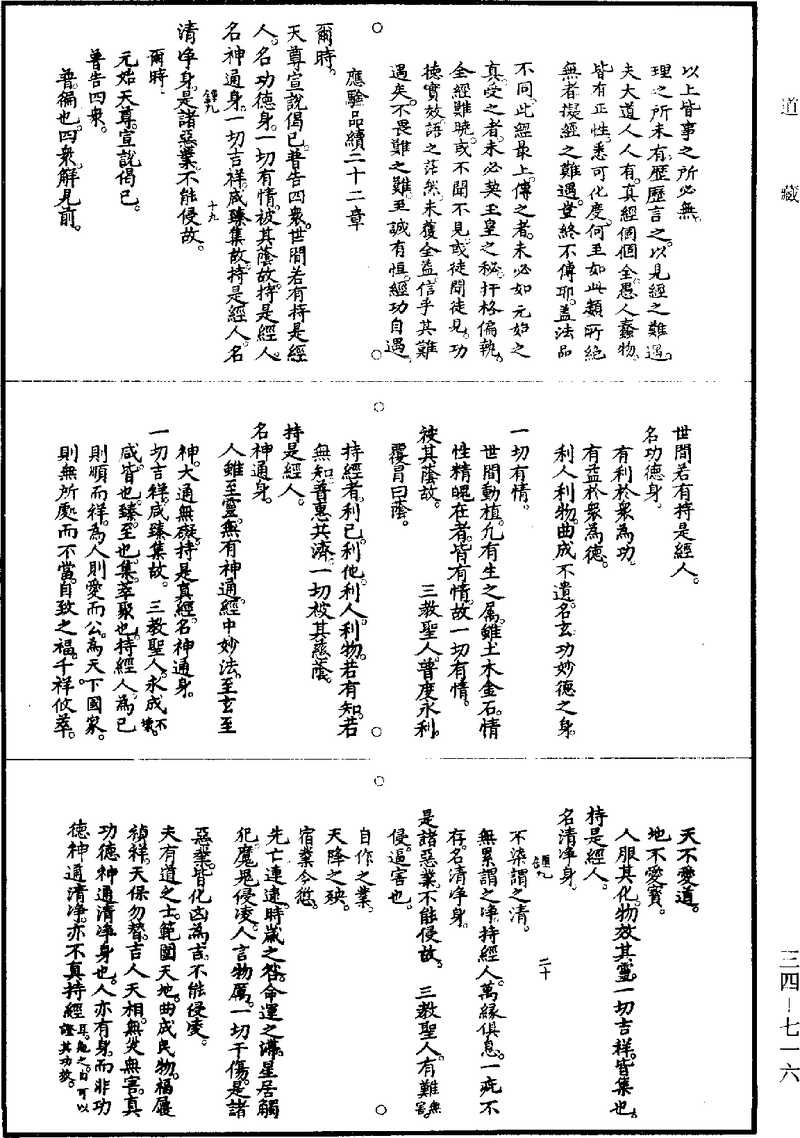 道藏
三四—七一六
以上皆事之所必無。
理之所未有。歷歷言之。以見經之難遇。
夫大道人人有。真經個個全。愚人蠢物。
皆有正性。悉可化度。何至如此類所絕
無者。擬經之難遇。豈終不傳耶。蓋法品
不同。此經最上。傳之者。未必如元始之
真。受之者。未必英王皇之秘。扞格偏執。
全經難曉。或不聞不見。或徒聞徒見。功
德實效。語之茫然。未獲全益。信乎其難
遇矣。不畏難之難。至誠有恒。經功自遇。
應驗品續二十二章
爾時。
天尊宣說偈已。普告四衆。世間若有持是經
人。名功德身。一切有情。被其蔭故。持是經人。
名神通身。一切吉祥。咸臻集故。持是經人。名
清净身。是諸惡業。不能侵故。
十九
爾時。
元始天尊。宣說偈已。
普告四衆。
普。徧也。四衆。解見前。
世間若有持是經人。
名功德身。
有利於衆為功。
有益於衆為德。
利人利物。曲成不遺。名玄功妙德之身。
一切有情。
世間動植。凡有生之属。雖土木金石。情
性精魄在者。皆有情。故一切有情。
被其蔭故。　三教聖人。曾度永利。
覆冒曰蔭。
持經者。利已。利他。利人。利物。若有知。若
無知。普惠共濟。一切被其慈蔭。
持是經人。
名神通身。
人雖至靈。無有神通。經中妙法。至玄至
神。大通無礙。持是真經。名神通身。
一切吉祥。咸臻集故。　三教聖人。永成不壞。
咸。皆也。臻。至也。集。萃聚也。持經人。為已
則順而祥。為人則愛而公。為天下國家。
則無所處而不當。自致之福。千祥攸萃。
天不愛道。
地不愛寶。
人服其化。物效其靈。一切吉祥。皆集也。
持是經人。
名清净身。
二十
不染謂之清。
無累謂之净。持經人。萬緣俱息。一疵不
存。名清净身。
是諸惡業。不能侵故。　三教聖人。有難無害。
侵。逼害也。
自作之業。
天降之殃。
宿業今愆。
先亡連逮。時歲之咎。命運之滯。星居觸
犯。魔鬼侵凌。人言物厲。一切干傷。是諸
惡業。皆化凶為吉。不能侵凌。
夫有道之士。範圍天地。曲成民物。福履
禎祥。天保勿替。吉人天相。無災無害。真
功德神通清净身也。人亦有身。而非功
德神通清净。亦不真持經耳。勉之。自可以證其功故。